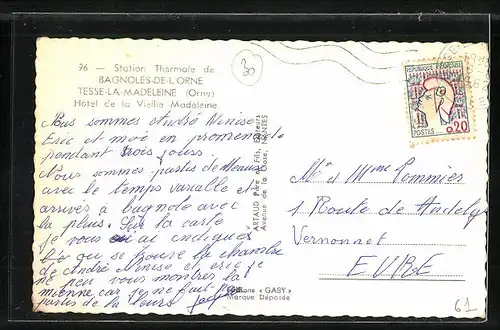 96 — Station Thermale de
BAGNOLES-DE-L'ORNE
TESSE-LA-MADELEINE (Orne)
Hotel de la Vieille Madeleine
30
Nous sommes André Denise
Eric et moi en promenade
pendant trois jours.
Nous sommes partis de
avec le temps variable et
arrivés à bagnole avec
la pluie. Sur la carte
je vous ai indiqué
là où se trouve la chambre
de André Denise et eric je
ne peu vous montrer la
mienne car je ne fait pas
partis de la
ARTAUD Père et Fils, Editeurs
Avenue de la Close, NANTES
Editions « GABY »
Marque Déposée
REPUBLIQUE FRANÇAISE
POSTES 0,20
Mr et Mme Pommier
1 Route de
Vernonnet
EURE
61